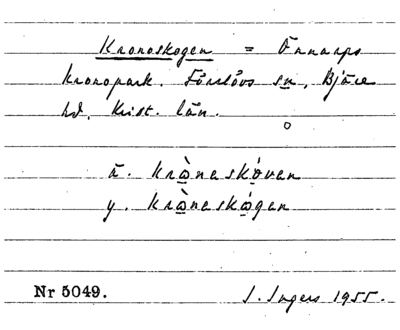 Kronoskogen = Önnarps
kronopark. Förslövs sn, Bjäre
hd, Krist. län.
ä. krò̱neskó̱ven
y. krò̱neskó̱gen
Nr 5049. I. Ingers 1955.